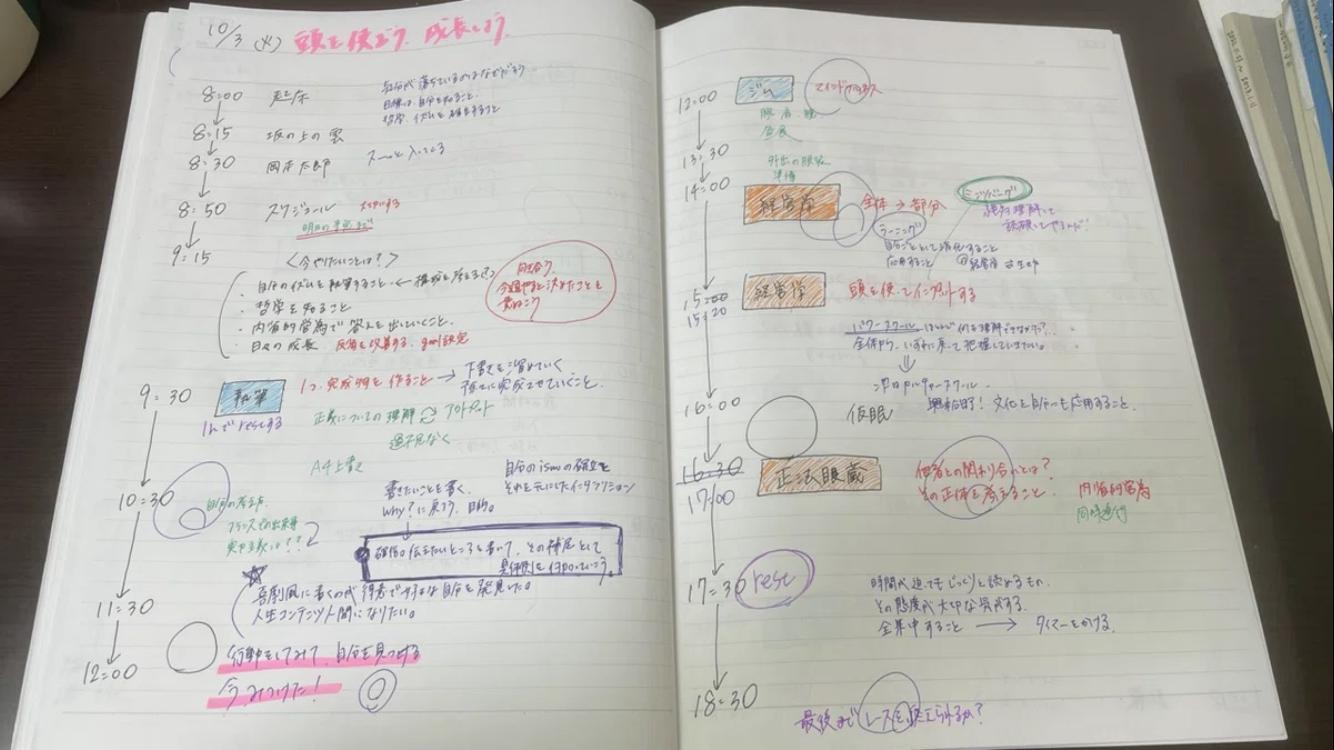 10/3 (火) 頭を使おう、成長しよう。
8:00 起床
自分が落ちているのはなぜだろう
目標は、自分を知ること、
哲学、イズムを確立すること
8:15 坂の上の雲
8:30 岡本太郎 スーっと入ってくる
8:50 スケジュール
明日の予定まで
9:15 <今やりたいことは?>
・自分のイズムを執筆すること ←
・哲学を知ること
・内省的営為で答えを出していくこと。
・日々の成長 反省を改善する、
向き合う、
今週やると決めたことを
9:30 執筆 1つ、完成物を作ること → 下書きを溜めていく
完成させていくこと。
1hでrestする
正義についての理解 アウトプット
過不足なく
A4上書き
10:30
自分の考え方
フランスでの出来事
自分のismの確立と
それを元にしたインタラクション
書きたいことを書く、
Why?に戻ろう、目的。
確信の伝えたいところを書いて、その補足として
具体例を付加していこう。
喜劇風に書くのが得意で好きな自分を発見した。
人生コンテンツ人間になりたい。
11:30
行動をしてみて、自分を見つける
今みつけた!
12:00
12:00 ジム マインドフルネス
昼食
13:30 外出の服装
準備
14:00 経営学 全体→部分
ミンツバーグ
ラーニング
自分ごととして消化すること
応用すること
15:00
15:20
経営学 頭を使ってインプットする
パワースクール
全体から、いずれに戻って把握していきたい。
⇓
カルチャースクール
興味合致! 文化を自分へも応用すること、
16:00 仮眠
16:30
17:00
正法眼蔵 他者との関わり合いとは?
その正体を考えること、
内省的営為
同時進行
17:30 rest
時間が迫ってもじっくりと読めるもの、
その態度が大切な気がする。
全集中すること → タイマーをかける。
18:30
最後までレースを終えられるか?